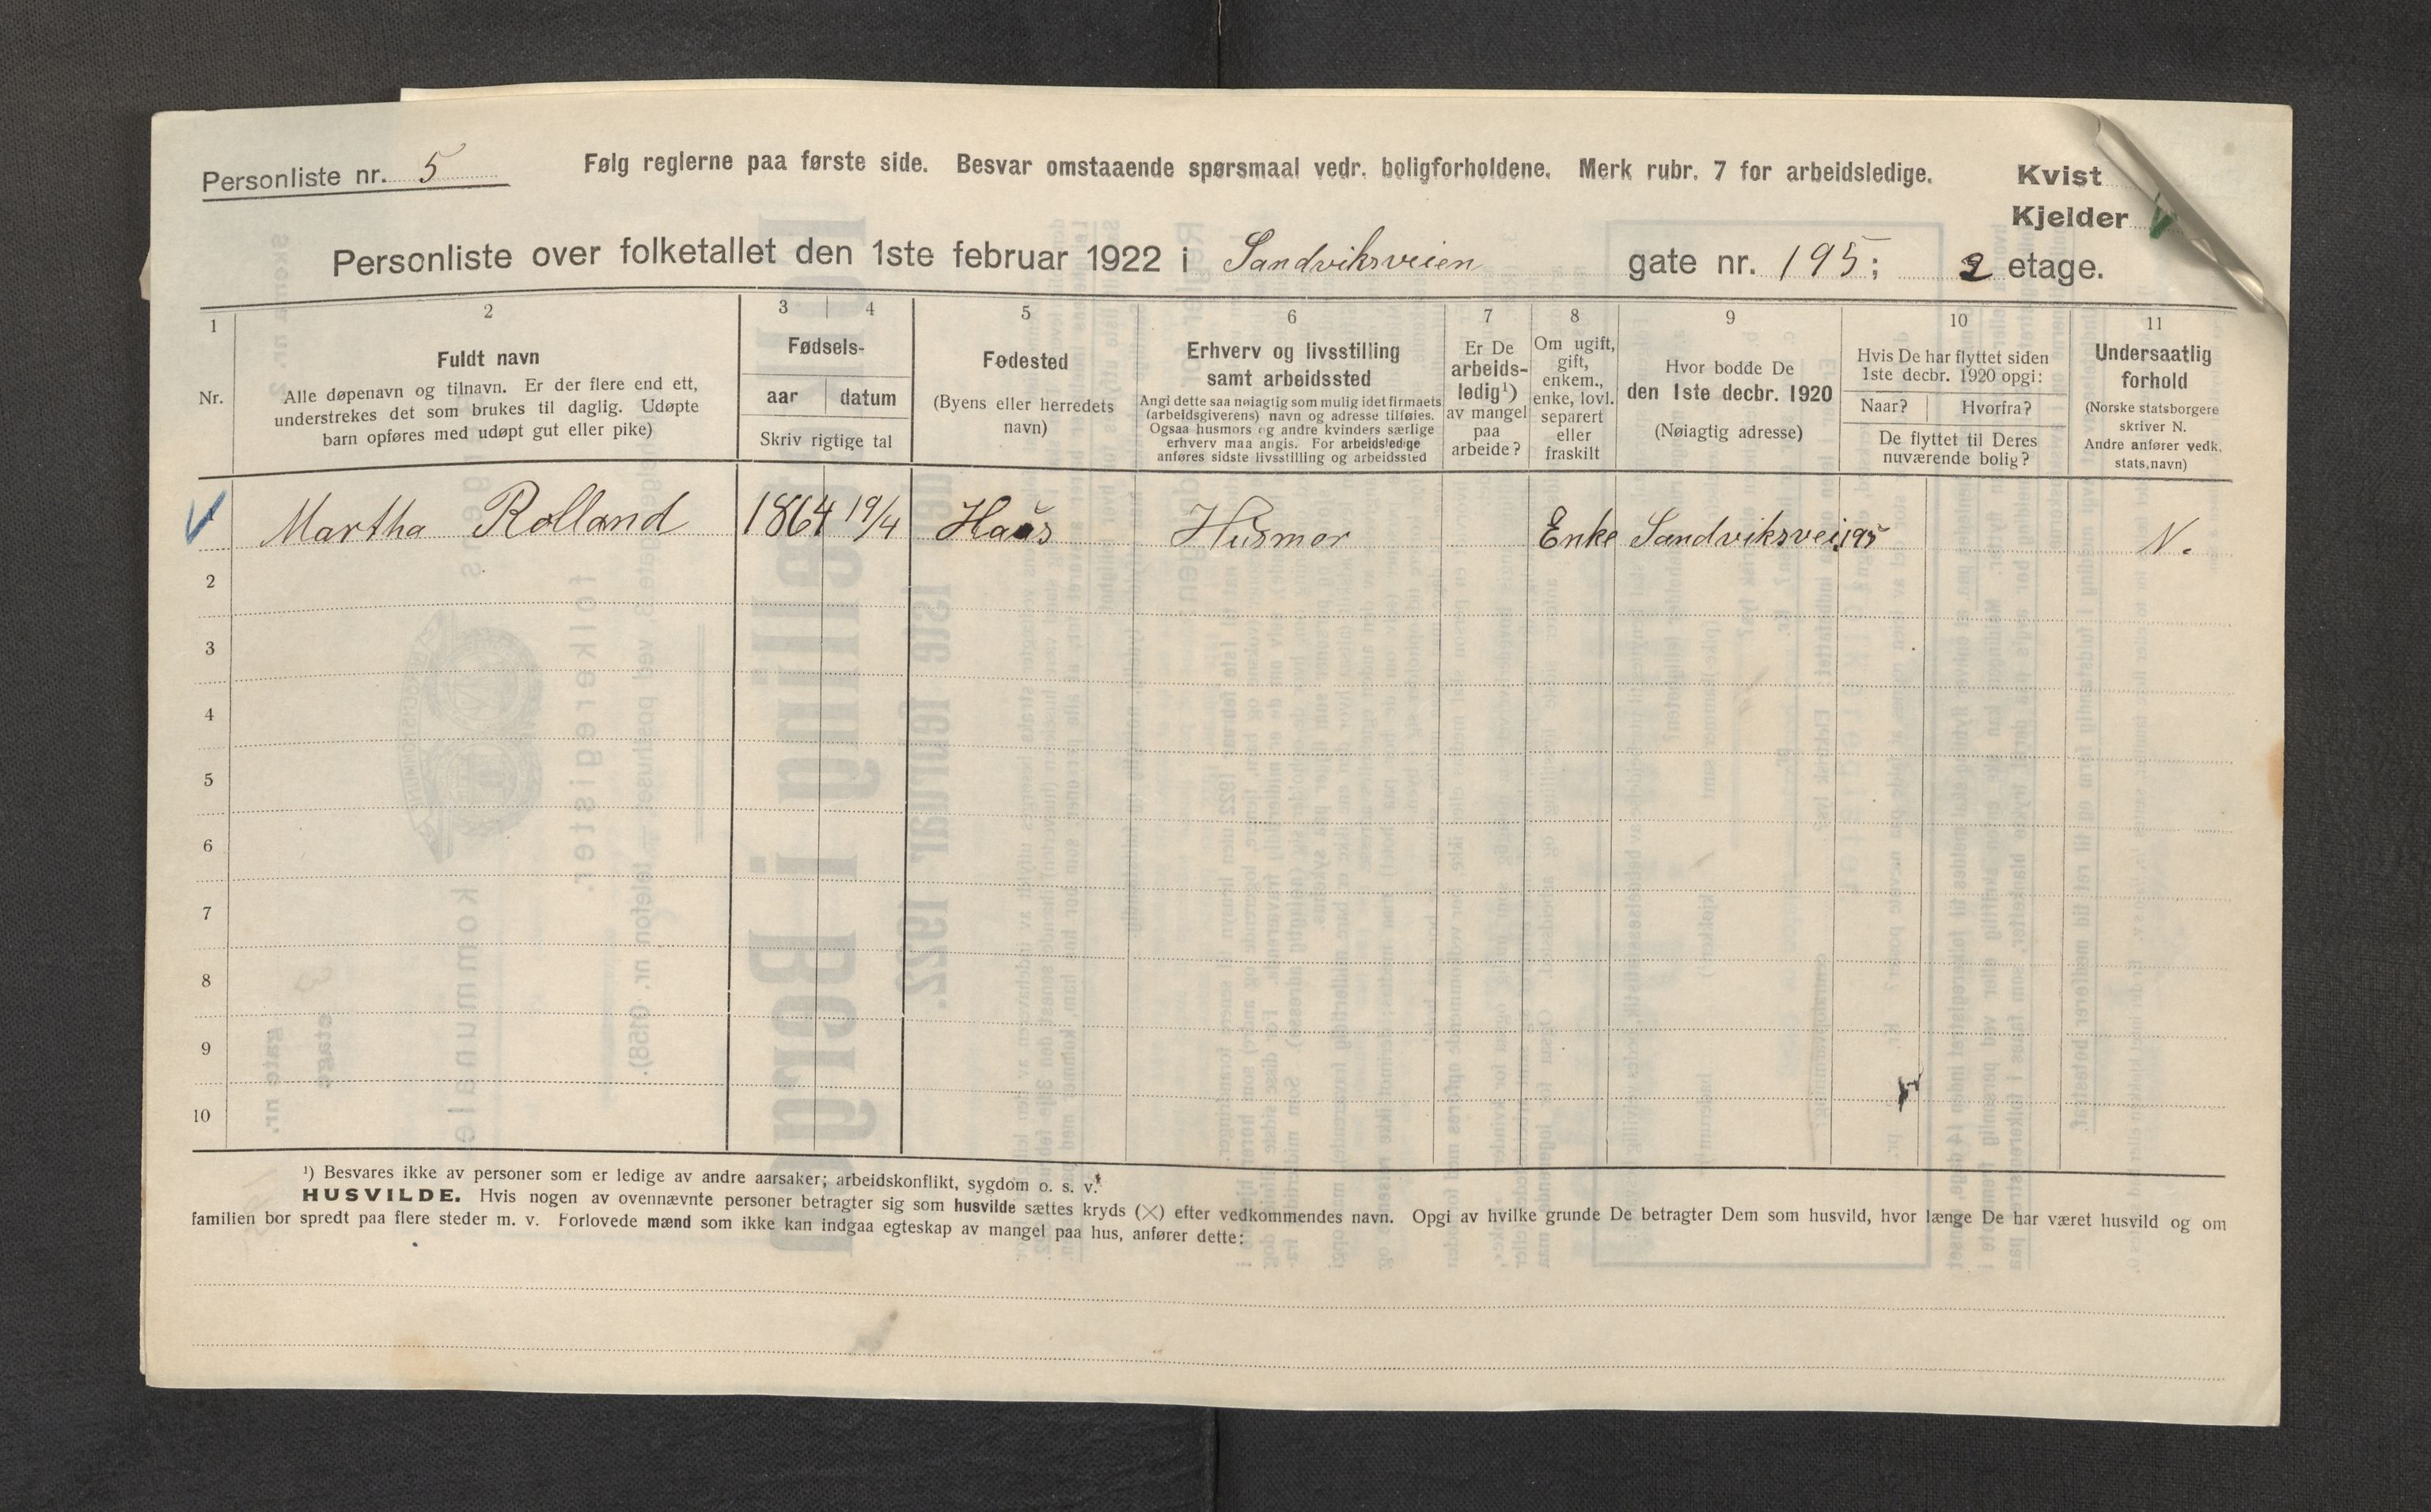 Personliste nr. 5
Følg reglerne paa første side. Besvar omstaaende spørsmaal vedr. boligforholdene. Merk rubr. 7 for arbeidsledige.
Kvist
Kjelder
Personliste over folketallet den 1ste februar 1922 i Sandviksveien gate nr. 195; 2 etage.
1
Nr.
2
Fuldt navn
Alle døpenavn og tilnavn. Er der flere end ett,
understrekes det som brukes til daglig. Udøpte
barn opføres med udøpt gut eller pike)
3 4
Fødsels-
aar datum
Skriv rigtige tal
5
Fødested
(Byens eller herredets
navn)
6
Erhverv og livsstilling
samt arbeidssted
Angi dette saa nøiagtig som mulig idet firmaets
(arbeidsgiverens) navn og adresse tilføies.
Ogsaa husmors og andre kvinders særlige
erhverv maa angis. For arbeidsledige
anføres sidste livsstilling og arbeidssted
7
Er De
arbeids-
ledig¹)
av mangel
paa
arbeide?
8
Om ugift,
gift,
enkem.,
enke, lovl.
separert
eller
fraskilt
9
Hvor bodde De
den 1ste decbr. 1920
(Nøiagtig adresse)
10
Hvis De har flyttet siden
1ste decbr. 1920 opgi:
Naar? Hvorfra?
De flyttet til Deres
nuværende bolig?
11
Undersaatlig
forhold
(Norske statsborgere
skriver N.
Andre anfører vedk.
stats.navn)
Martha Rolland 1864 19/4 Haus Husmor Enke Sandviksvei 195 N.
2
3
4
5
6
7
8
9
10
¹) Besvares ikke av personer som er ledige av andre aarsaker; arbeidskonflikt, sygdom o. s. v.
HUSVILDE. Hvis nogen av ovennævnte personer betragter sig som husvilde sættes kryds (×) efter vedkommendes navn. Opgi av hvilke grunde De betragter Dem som husvild, hvor længe De har været husvild og om
familien bor spredt paa flere steder m. v. Forlovede mænd som ikke kan indgaa egteskap av mangel paa hus, anfører dette: